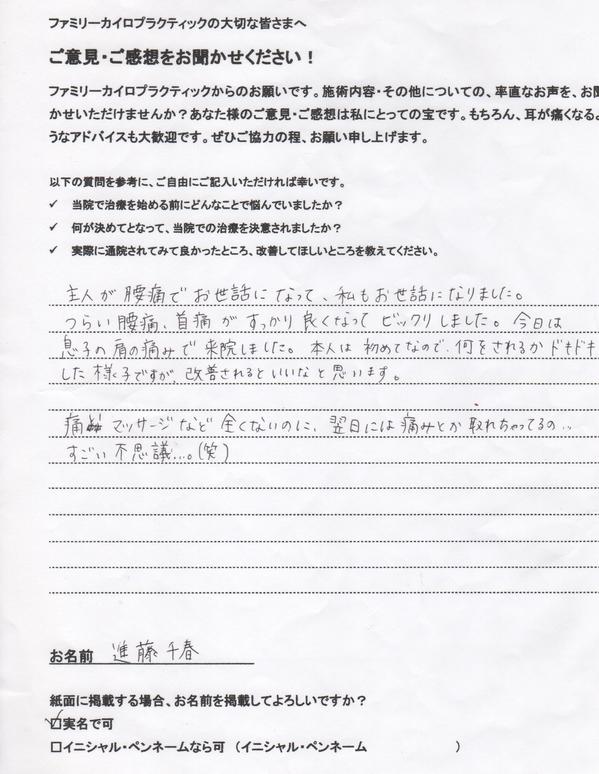 ファミリーカイロプラクティックの大切な皆さまへ
ご意見・ご感想をお聞かせください！
ファミリーカイロプラクティックからのお願いです。施術内容・その他についての、率直なお声を、お聞
かせいただけませんか？あなた様のご意見・ご感想は私にとっての宝です。もちろん、耳が痛くなる。
うなアドバイスも大歓迎です。ぜひご協力の程、お願い申し上げます。
以下の質問を参考に、ご自由にご記入いただければ幸いです。
✓ 当院で治療を始める前にどんなことで悩んでいましたか？
✓ 何が決めてとなって、当院での治療を決意されましたか？
✓ 実際に通院されてみて良かったところ、改善してほしいところを教えてください。
主人が腰痛でお世話になって、私もお世話になりました。
つらい腰痛、首痛がすっかり良くなってビックリしました。今日は
息子の肩の痛みで来院しました。本人は初めてなので、何をされるかドキドキ
した様子ですが、改善されるといいなと思います。
痛 マッサージなど全くないのに、翌日には痛みとか取れちゃってるの‥
すごい不思議…。(笑)
お名前 進藤千春
紙面に掲載する場合、お名前を掲載してよろしいですか？
☑実名で可
□イニシャル・ペンネームなら可 （イニシャル・ペンネーム ）